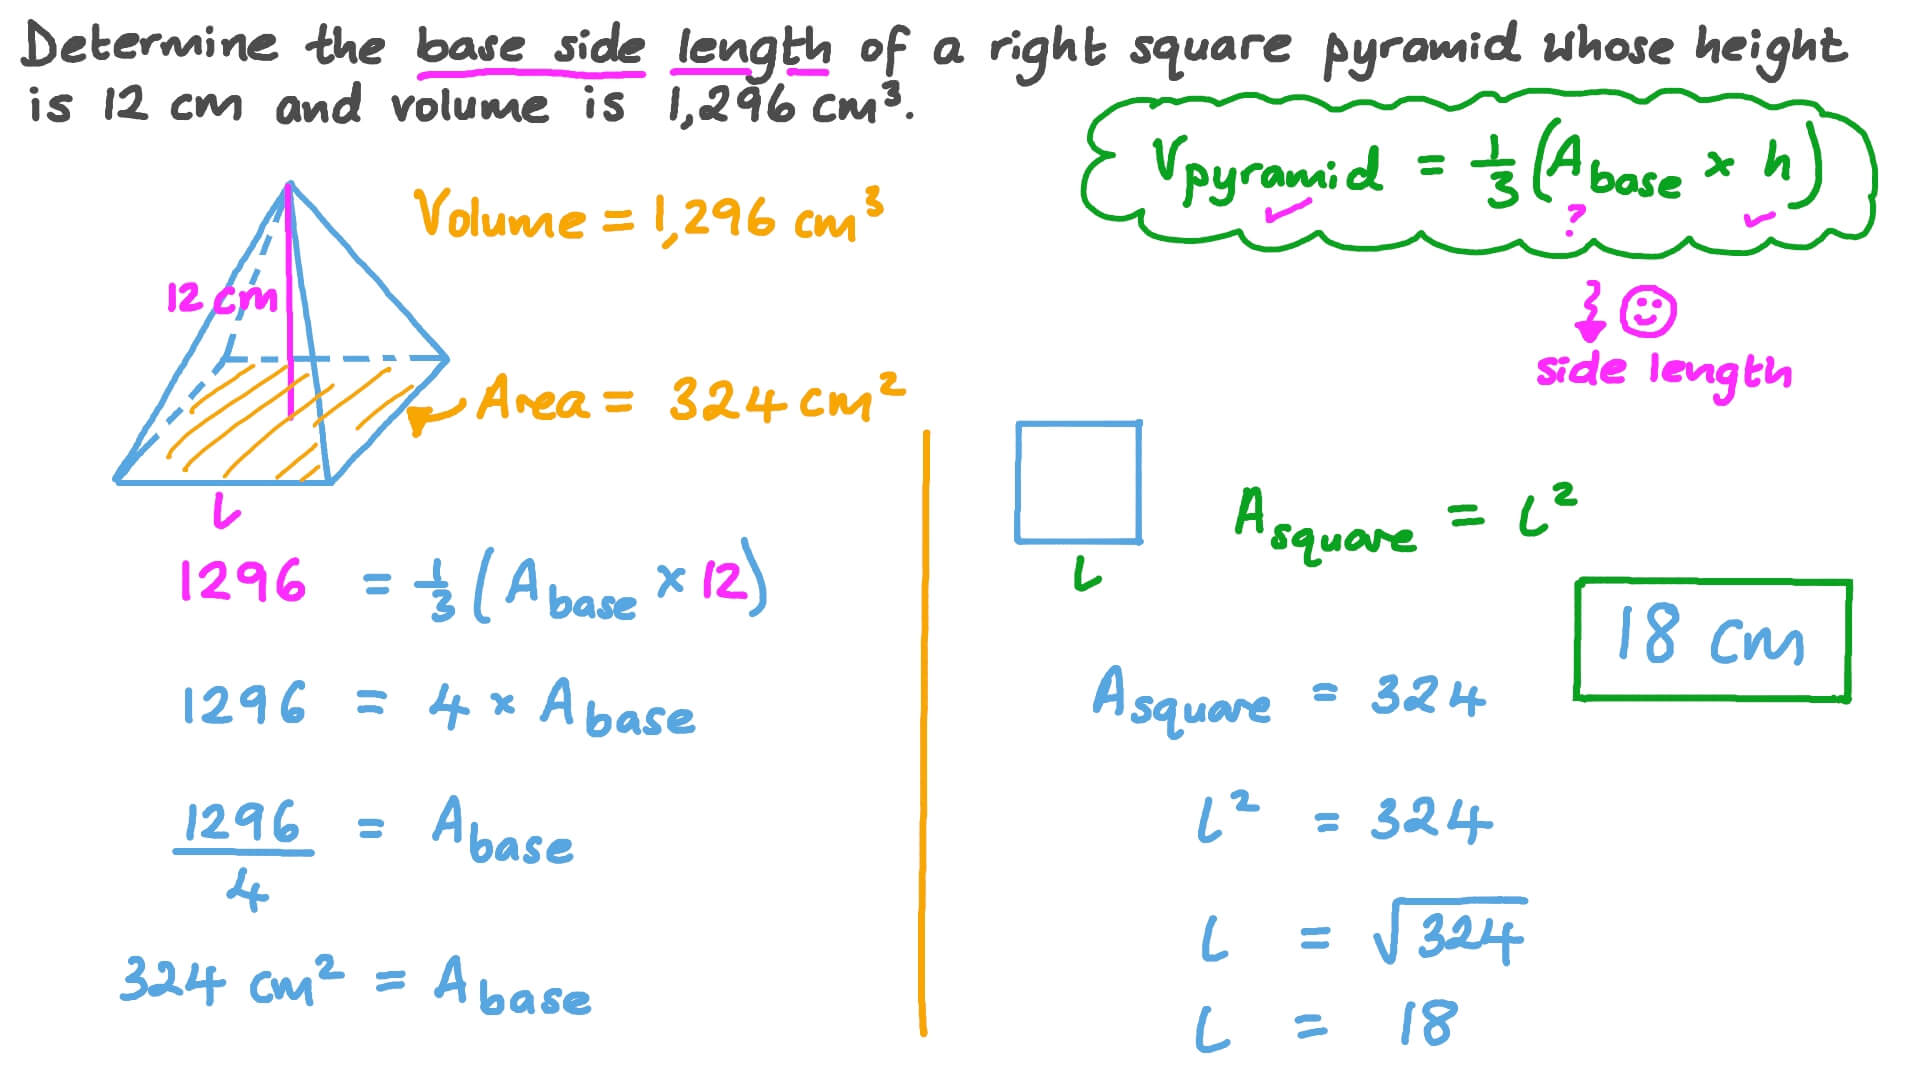 Determine the base side length of a right square pyramid whose height
is 12 cm and volume is 1,296 cm³.
V pyramid = 1/3 (A base × h)
?
side length
Volume = 1,296 cm³
12 cm
Area = 324 cm²
L
1296 = 1/3 (A base × 12)
1296 = 4 × A base
1296/4 = A base
324 cm² = A base
L
A square = L²
18 cm
A square = 324
L² = 324
L = √324
L = 18